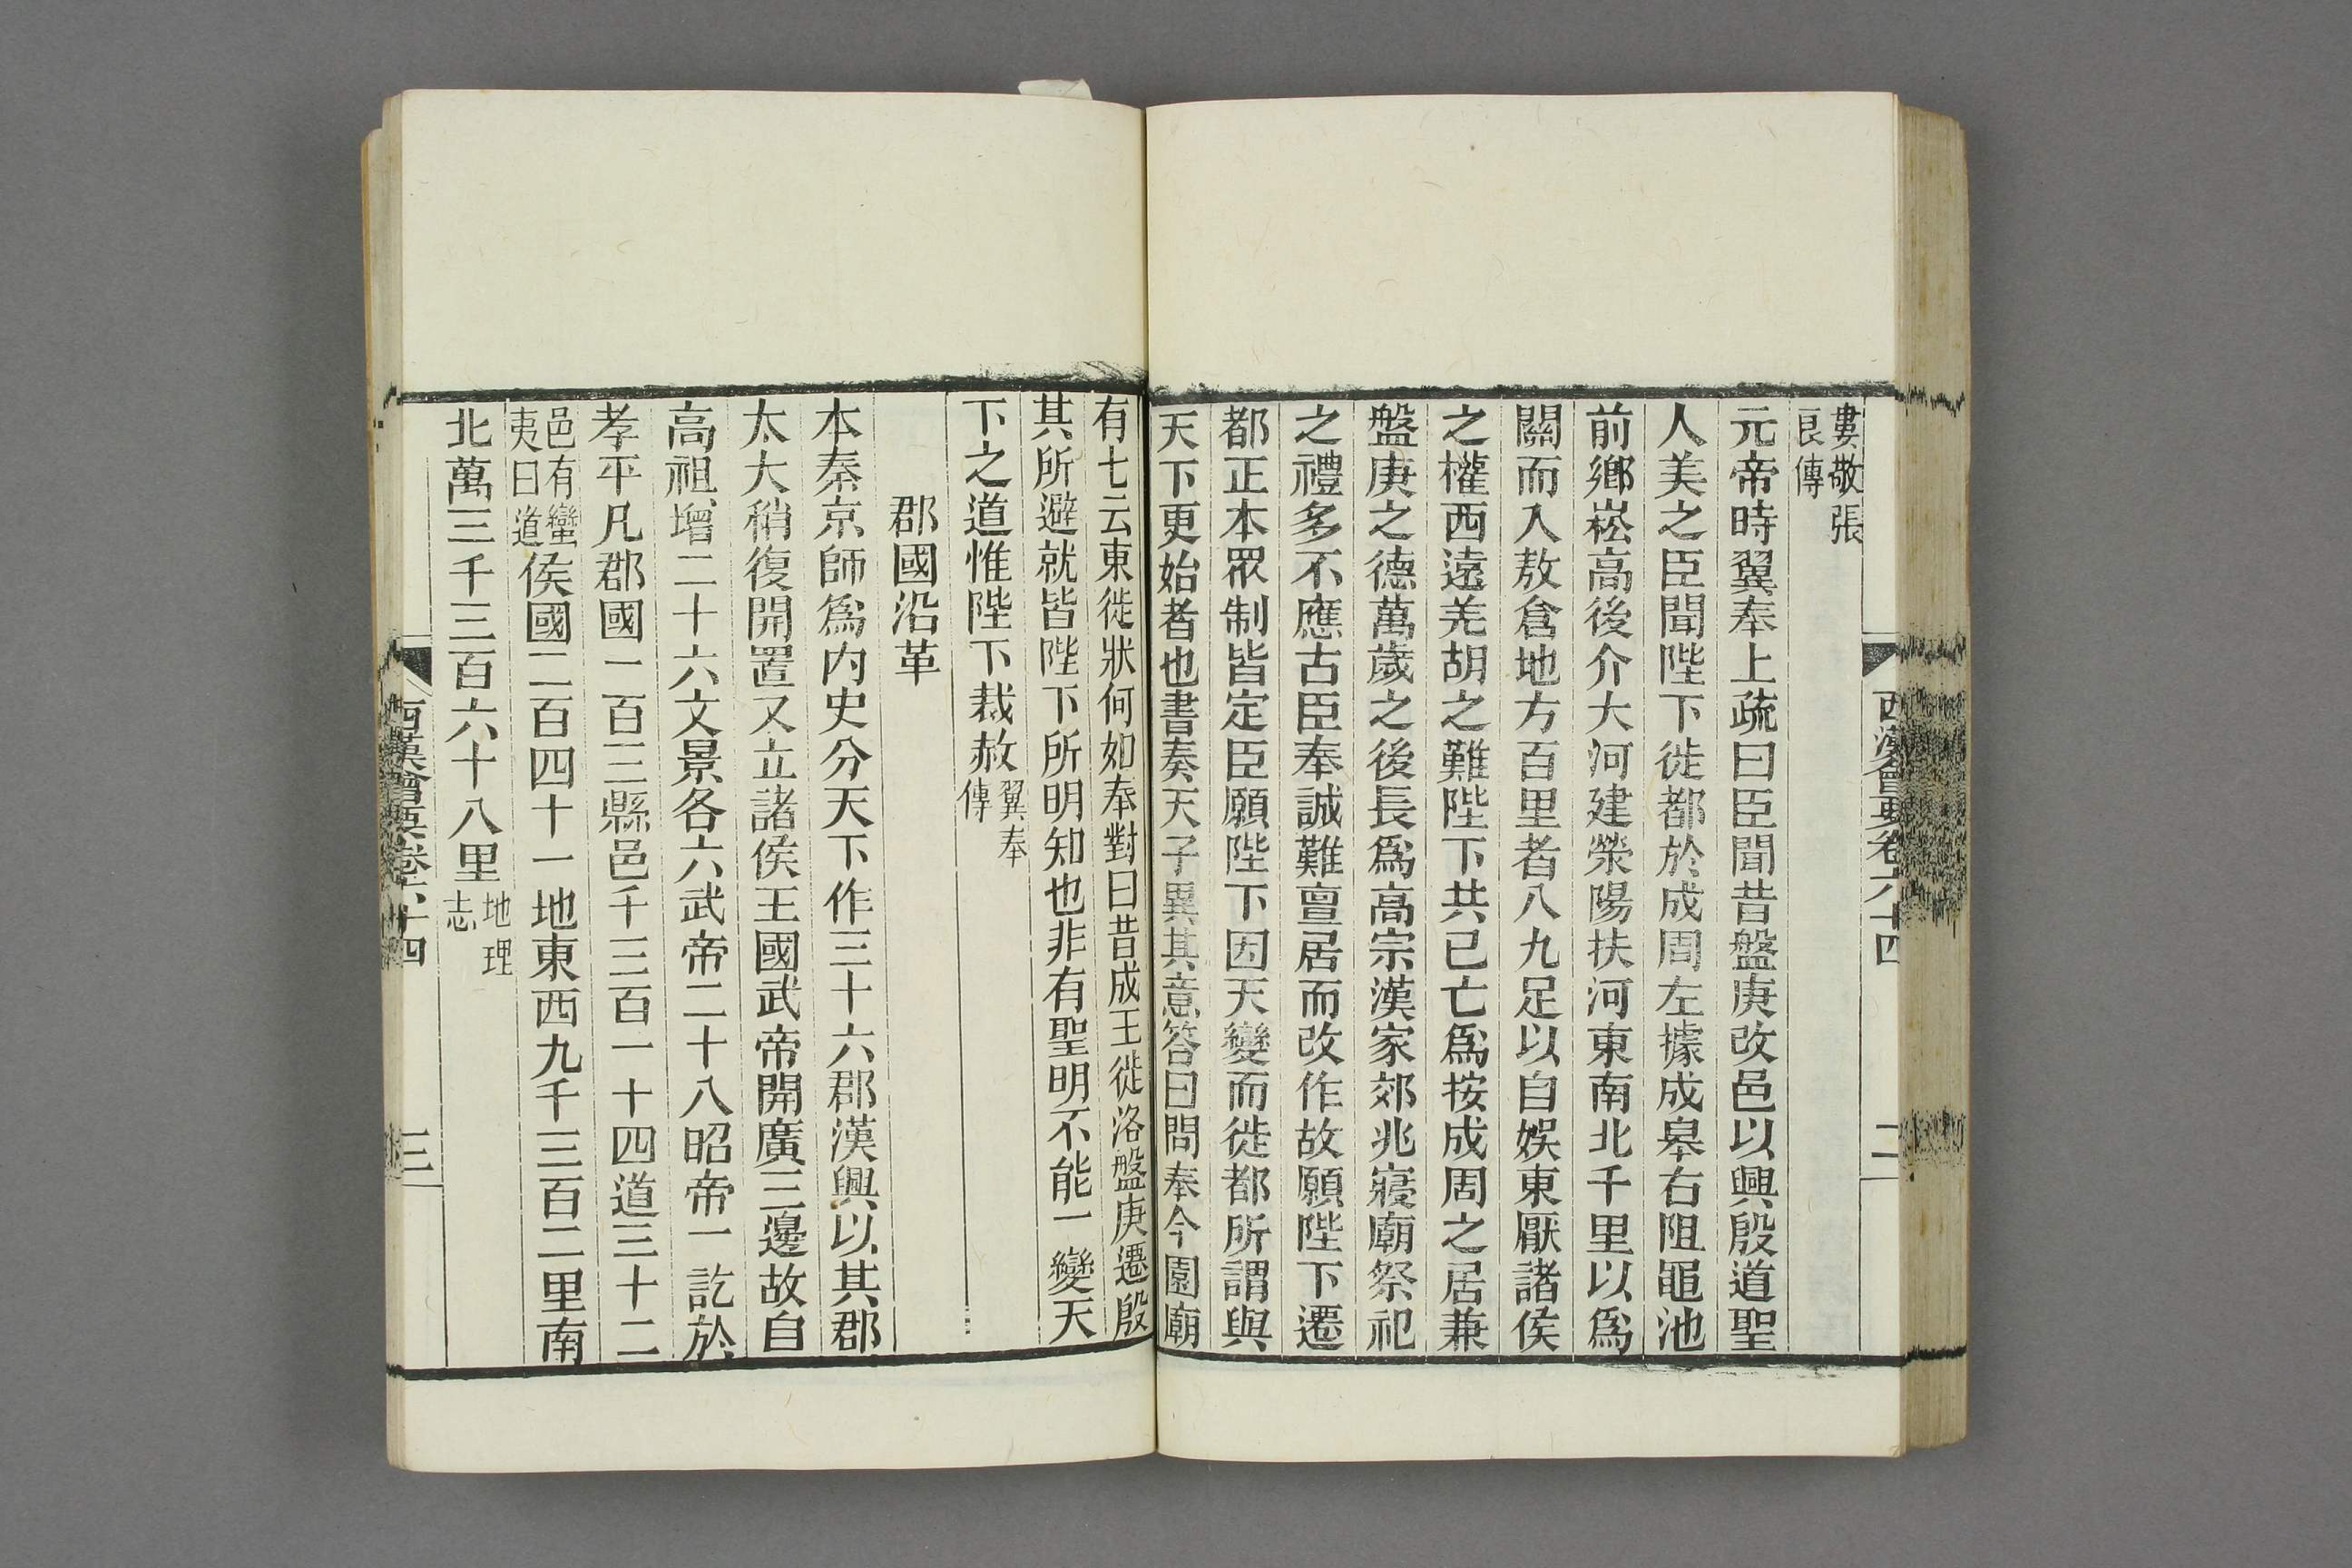 婁敬張
良傳
元帝時翼奉上疏曰臣聞昔盤庚改邑以興殷道聖
人美之臣聞陛下徙都於成周左據成皋右阻黽池
前鄉崧高後介大河建滎陽扶河東南北千里以爲
關而入敖倉地方百里者八九足以自娛東厭諸侯
之權西遠羌胡之難陛下共已亡爲按成周之居兼
盤庚之德萬歲之後長爲高宗漢家郊兆寢廟祭祀
之禮多不應古臣奉誠難亶居而改作故願陛下遷
都正本眾制皆定臣願陛下因天變而徙都所謂與
天下更始者也書奏天子異其意答曰問奉今園廟
西漢會要卷六十四
二
有七云東徙狀何如奉對曰昔成王徙洛盤庚遷殷
其所避就皆陛下所明知也非有聖明不能一變天
下之道惟陛下裁赦翼奉
傳
郡國沿革
本秦京師爲內史分天下作三十六郡漢興以其郡
太大稍復開置又立諸侯王國武帝開廣三邊故自
高祖增二十六文景各六武帝二十八昭帝一訖於
孝平凡郡國一百三縣邑千三百一十四道三十二
邑有蠻
夷曰道侯國二百四十一地東西九千三百二里南
北萬三千三百六十八里地理
志
西漢會要卷六十四
三